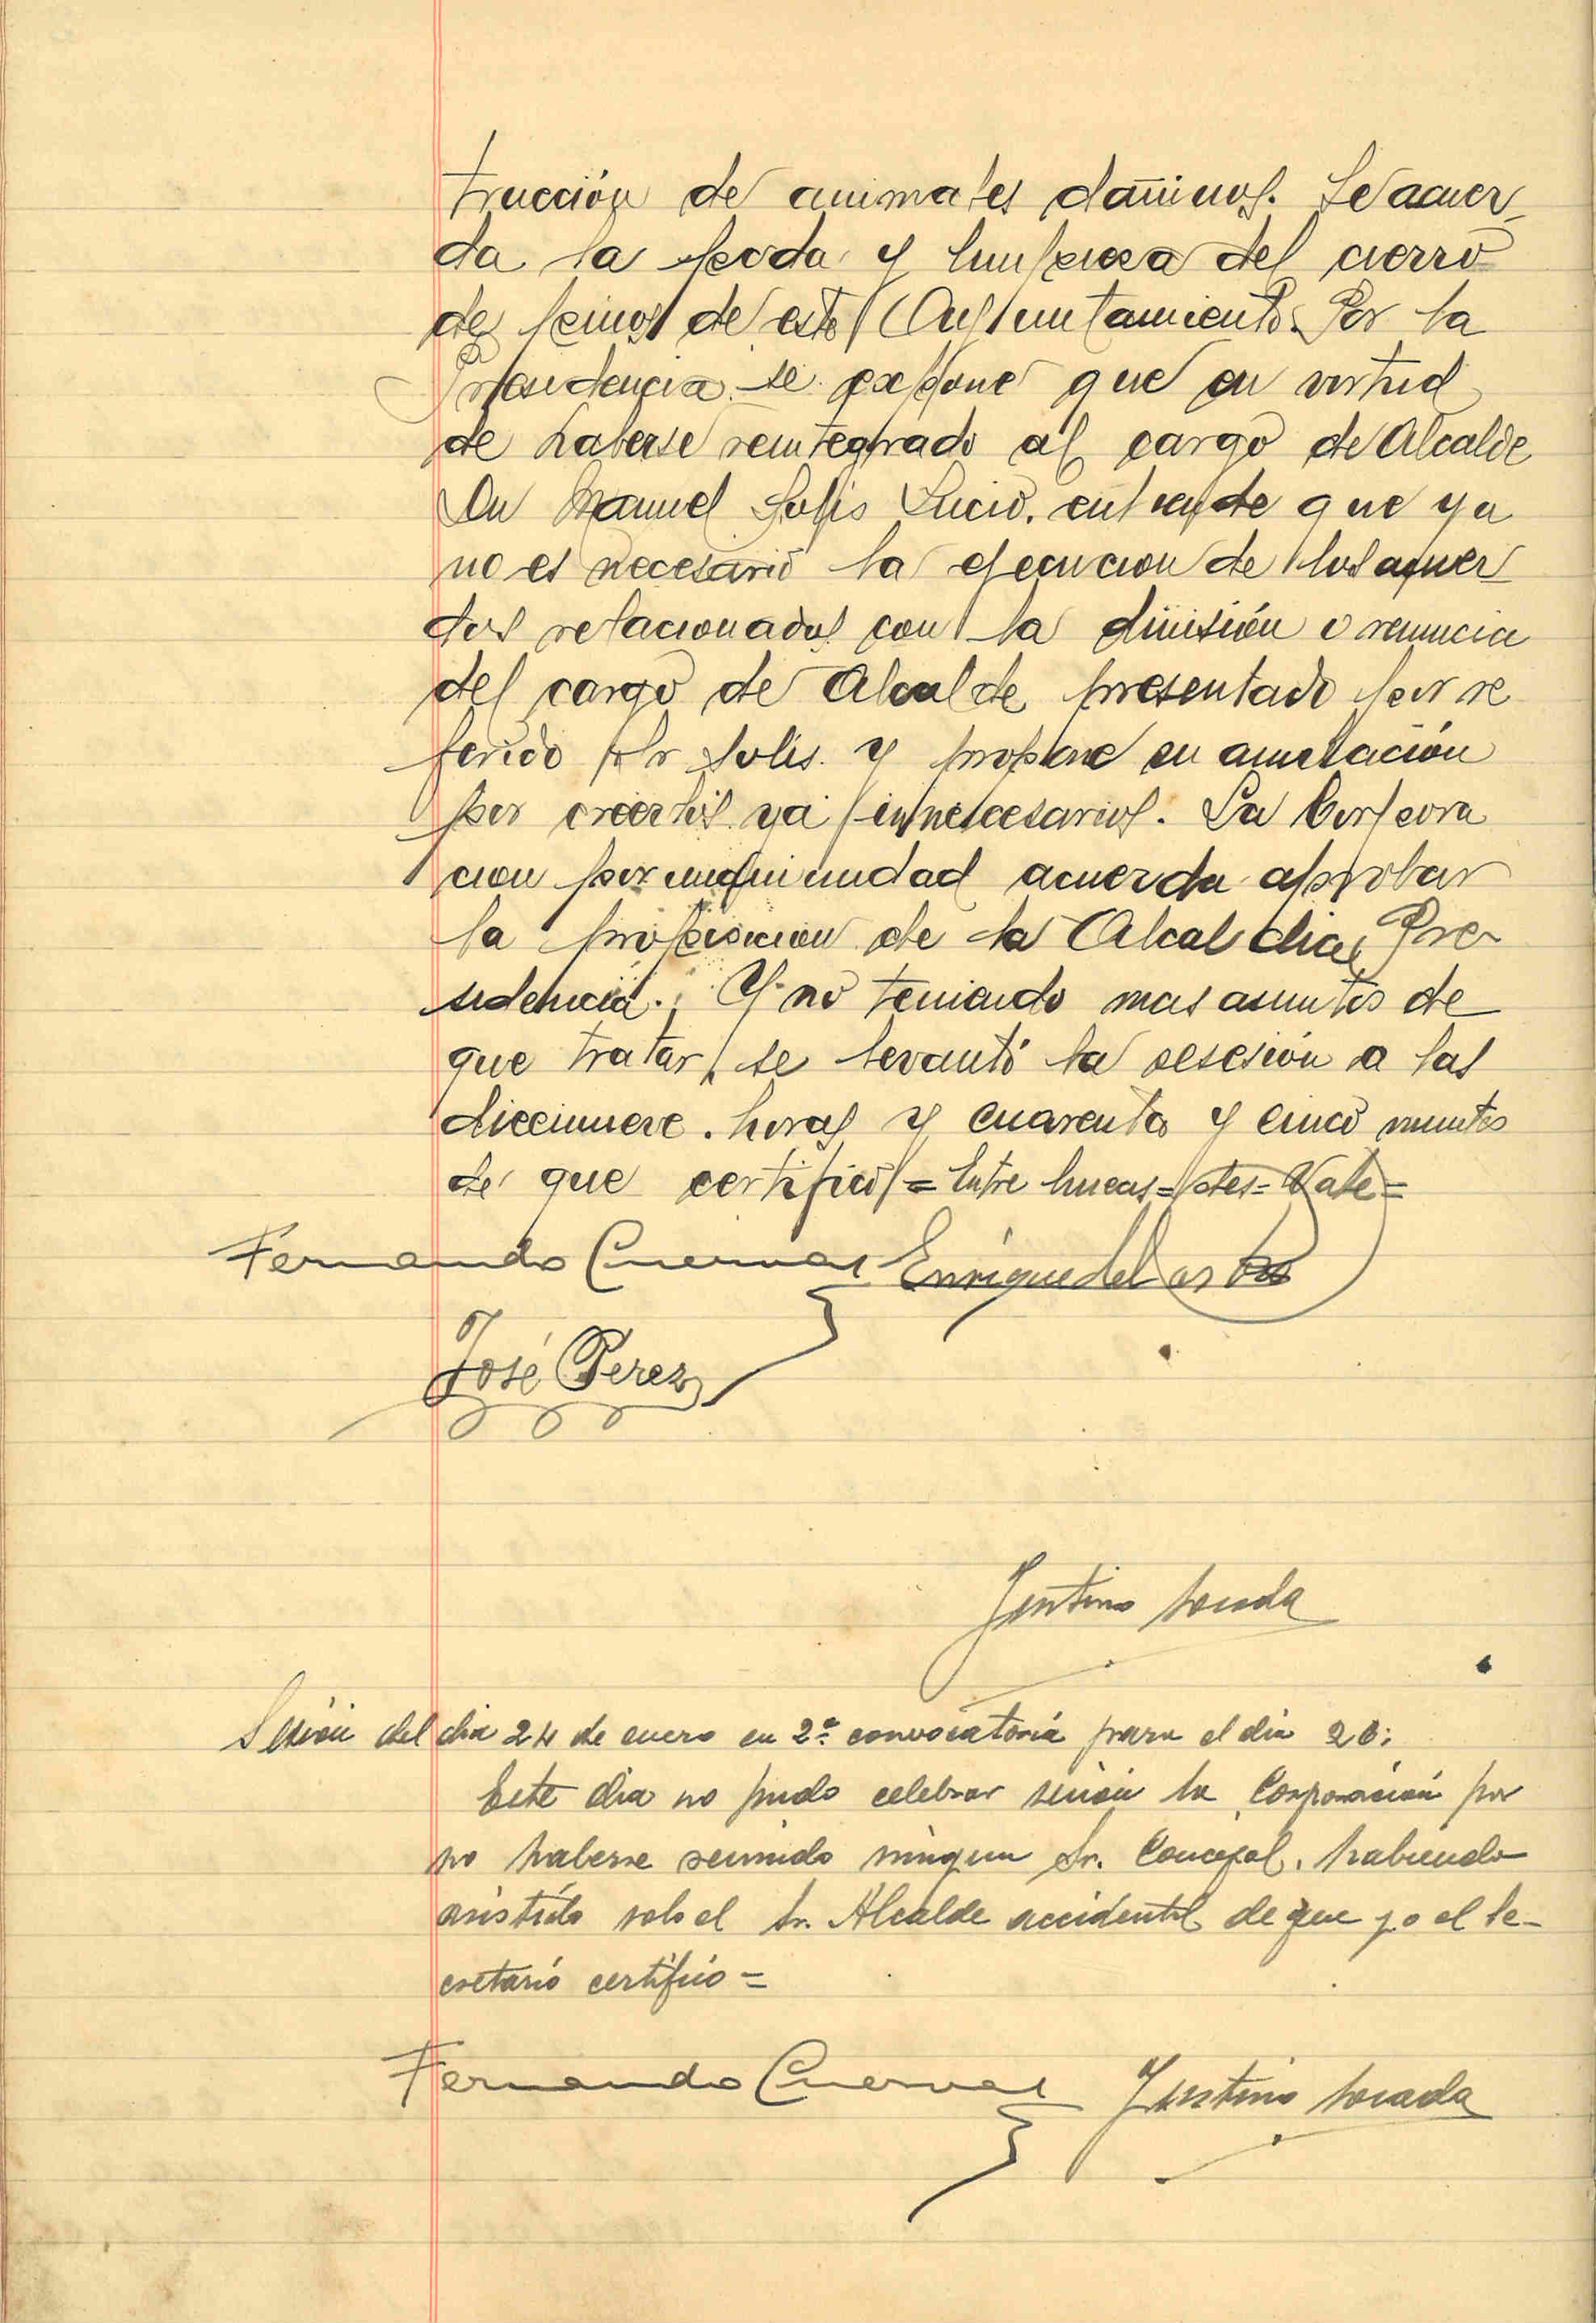 trucción de animales dañinos. Se acuer-
da la poda y limpieza del cierro
de pinos de este Ayuntamiento. Por la
Presidencia se expone que en virtud
de haberse reintegrado al cargo de Alcalde
Dn Manuel Solís Lucio. entiende que ya
no es necesario la ejecucion de los acuer
dos relacionados con la dimisión o renuncia
del cargo de Alcalde presentado por re
ferido Sr Solis. y propone su anulación
por creerlos ya innescesarios. La Corpora
cion por unanimidad acuerda aprobar
la proposicion de la Alcaldia Pre-
sidencia. Y no teniendo mas asuntos de
que tratar, se levantó la sesesión a las
diecinueve horas y cuarenta y cinco minutos
de que certifico = Entre lineas = tes = Vale =
Fernando Cuervas Enrique del
José Perez
Justino
Sesión del dia 24 de enero en 2ª convocatoria para el dia 26:
Este dia no pudo celebrar sesión la Corporación por
no haberse reunido ningun Sr. Concejal, habiendo
asistido solo el Sr. Alcalde accidental de que yo el Se-
cretario certifico =
Fernando Cuervas Justino